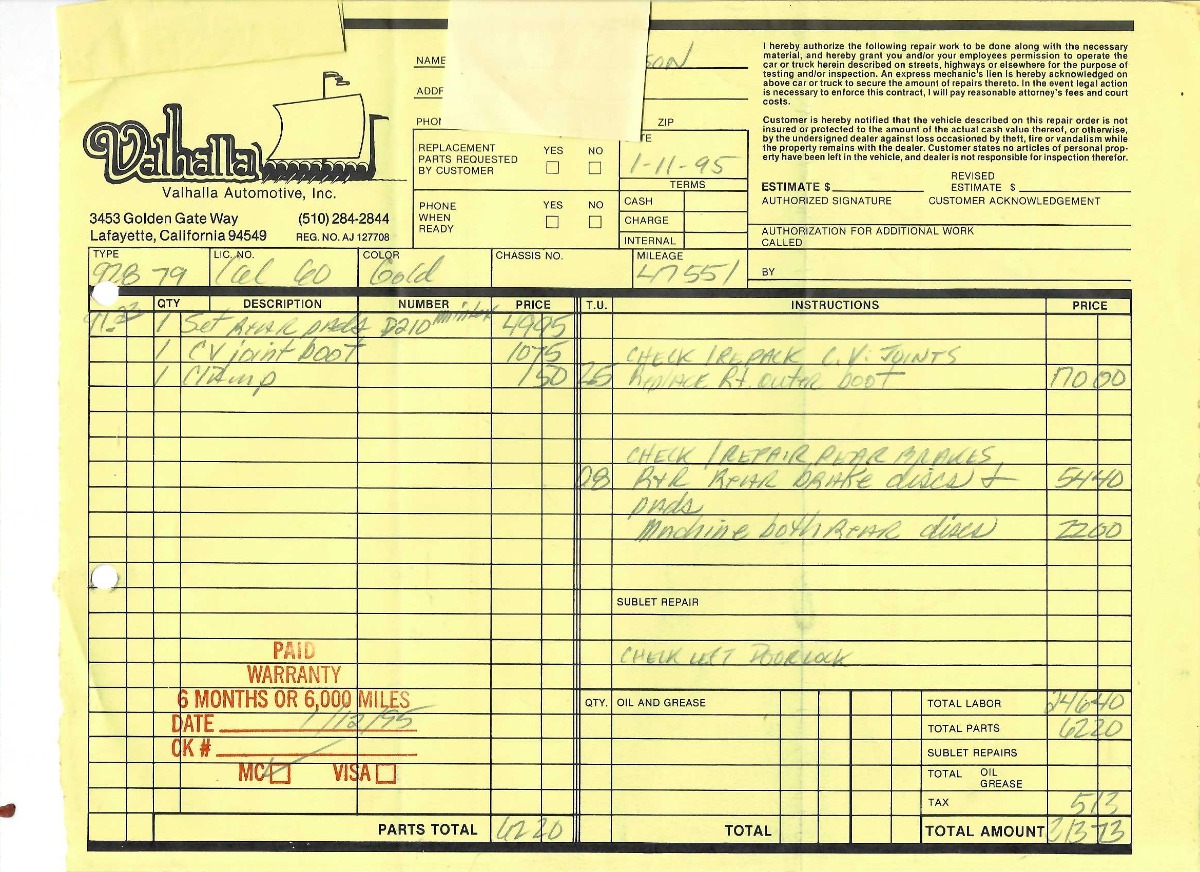 NAME SON
ADD
PHO ZIP
I hereby authorize the following repair work to be done along with the necessary
material, and hereby grant you and/or your employees permission to operate the
car or truck herein described on streets, highways or elsewhere for the purpose of
testing and/or inspection. An express mechanic's lien is hereby acknowledged on
above car or truck to secure the amount of repairs thereto. In the event legal action
is necessary to enforce this contract, I will pay reasonable attorney's fees and court
costs.
Customer is hereby notified that the vehicle described on this repair order is not
insured or protected to the amount of the actual cash value thereof, or otherwise,
by the undersigned dealer against loss occasioned by theft, fire or vandalism while
the property remains with the dealer. Customer states no articles of personal prop-
erty have been left in the vehicle, and dealer is not responsible for inspection therefor.
Valhalla
Valhalla Automotive, Inc.
3453 Golden Gate Way (510) 284-2844
Lafayette, California 94549 REG. NO. AJ 127708
REPLACEMENT
PARTS REQUESTED
BY CUSTOMER
YES NO
PHONE
WHEN
READY
YES NO
TE
1-11-95
TERMS
CASH
CHARGE
INTERNAL
ESTIMATE $ REVISED ESTIMATE $
AUTHORIZED SIGNATURE CUSTOMER ACKNOWLEDGEMENT
AUTHORIZATION FOR ADDITIONAL WORK
CALLED
BY
TYPE LIC. NO. COLOR CHASSIS NO. MILEAGE
928 79 Cal 60 Gold 47551
QTY DESCRIPTION NUMBER PRICE T.U. INSTRUCTIONS PRICE
1 Set REAR pads D210 mintex 4995
1 CV joint boot 1075 CHECK / REPACK C.V. JOINTS
1 Clamp 150 25 Replace Rt. outer boot 170 00
CHECK / REPAIR REAR BRAKES
08 R+R REAR BRAKE discs + 5440
pads
Machine both REAR discs 2200
SUBLET REPAIR
CHECK LEFT DOOR LOCK
PAID
WARRANTY
6 MONTHS OR 6,000 MILES
DATE 1/12/95
CK #
MC VISA
QTY. OIL AND GREASE
TOTAL LABOR 24640
TOTAL PARTS 6220
SUBLET REPAIRS
TOTAL OIL GREASE
TAX 513
PARTS TOTAL 6220 TOTAL TOTAL AMOUNT 31373